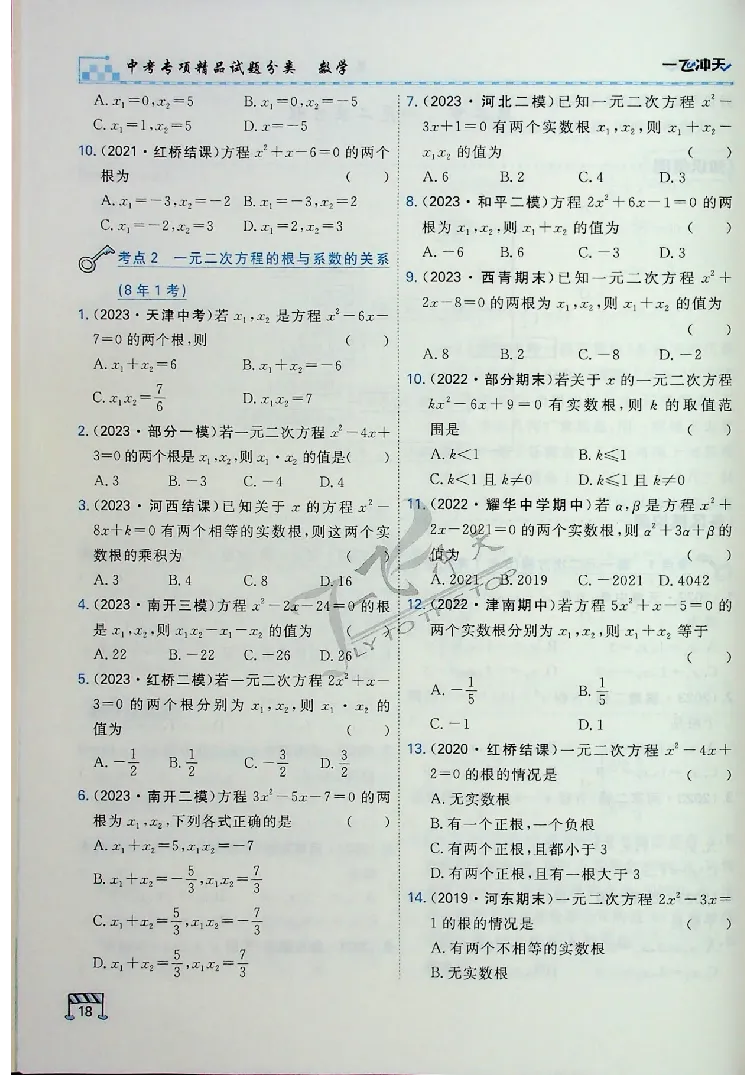 中考专项精品试题分类 数学
一飞冲天
A. x₁=0,x₂=5 B. x₁=0,x₂=-5
C. x₁=1,x₂=5 D. x=-5
10. (2021·红桥结课)方程 x²+x-6=0 的两个
根为 ( )
A. x₁=-3,x₂=-2 B. x₁=-3,x₂=2
C. x₁=-2,x₂=3 D. x₁=2,x₂=3
考点2 一元二次方程的根与系数的关系
(8年1考)
1. (2023·天津中考)若 x₁,x₂ 是方程 x²-6x-
7=0 的两个根,则 ( )
A. x₁+x₂=6 B. x₁+x₂=-6
C. x₁x₂=7/6 D. x₁x₂=7
2. (2023·部分一模)若一元二次方程 x²-4x+
3=0 的两个根是 x₁,x₂,则 x₁·x₂ 的值是( )
A. 3 B. -3 C. -4 D. 4
3. (2023·河西结课)已知关于 x 的方程 x²-
8x+k=0 有两个相等的实数根,则这两个实
数根的乘积为 ( )
A. 3 B. 4 C. 8 D. 16
4. (2023·南开三模)方程 x²-2x-24=0 的根
是 x₁,x₂,则 x₁x₂-x₁-x₂ 的值为 ( )
A. 22 B. -22 C. -26 D. 26
5. (2023·红桥二模)若一元二次方程 2x²+x-
3=0 的两个根分别为 x₁,x₂,则 x₁·x₂ 的
值为 ( )
A. -1/2 B. 1/2 C. -3/2 D. 3/2
6. (2023·南开二模)方程 3x²-5x-7=0 的两
根为 x₁,x₂,下列各式正确的是 ( )
A. x₁+x₂=5,x₁x₂=-7
B. x₁+x₂=-5/3,x₁x₂=7/3
C. x₁+x₂=5/3,x₁x₂=-7/3
D. x₁+x₂=5/3,x₁x₂=7/3
18
7. (2023·河北二模)已知一元二次方程 x²-
3x+1=0 有两个实数根 x₁,x₂,则 x₁+x₂-
x₁x₂ 的值为 ( )
A. 6 B. 2 C. 4 D. 3
8. (2023·和平二模)方程 2x²+6x-1=0 的两
根为 x₁,x₂,则 x₁+x₂ 的值为 ( )
A. -6 B. 6 C. -3 D. 3
9. (2023·西青期末)已知一元二次方程 x²+
2x-8=0 的两根为 x₁,x₂,则 x₁+x₂ 的值为
( )
A. 8 B. 2 C. -8 D. -2
10. (2022·部分期末)若关于 x 的一元二次方程
kx²-6x+9=0 有实数根,则 k 的取值范
围是 ( )
A. k<1 B. k≤1
C. k<1 且 k≠0 D. k≤1 且 k≠0
11. (2022·耀华中学期中)若 α,β 是方程 x²+
2x-2021=0 的两个实数根,则 α²+3α+β 的
值为 ( )
A. 2021 B. 2019 C. -2021 D. 4042
12. (2022·津南期中)若方程 5x²+x-5=0 的
两个实数根分别为 x₁,x₂,则 x₁+x₂ 等于
( )
A. -1/5 B. 1/5
C. -1 D. 1
13. (2020·红桥结课)一元二次方程 x²-4x+
2=0 的根的情况是 ( )
A. 无实数根
B. 有一个正根,一个负根
C. 有两个正根,且都小于 3
D. 有两个正根,且有一根大于 3
14. (2019·河东期末)一元二次方程 2x²-3x=
1 的根的情况是 ( )
A. 有两个不相等的实数根
B. 无实数根
一飞冲天
FLY TO THE TOP